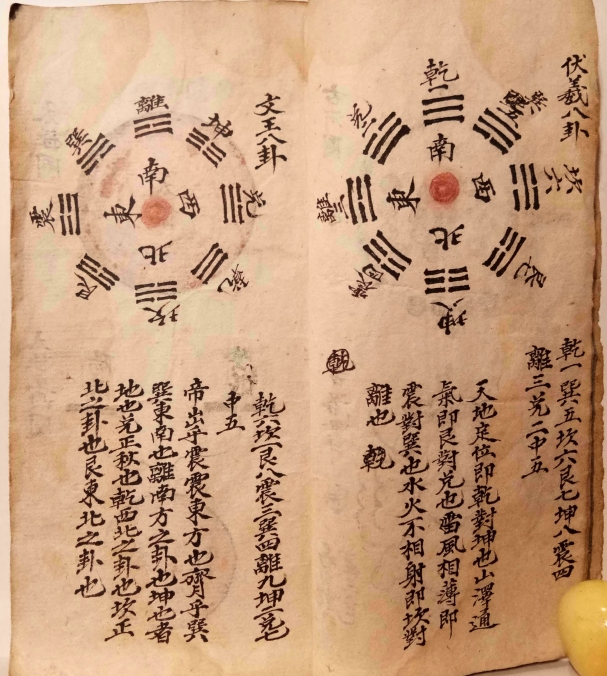 伏羲八卦
乾
兌
離
震
坤
艮
坎六
巽五
南
東
西
北
乾一巽五坎六艮七坤八震四
離三兌二中五
天地定位即乾對坤也山澤通
氣即艮對兌也雷風相薄即
震對巽也水火不相射即坎對
離也 乾
乾
文王八卦
離
坤
兌
乾
坎
艮
震
巽
南
東
西
北
乾六坎一艮八震三巽四離九坤二兌七
中五
帝出乎震震東方也齊乎巽
巽東南也離南方之卦也坤也者
地也兌正秋也乾西北之卦也坎正
北之卦也艮東北之卦也